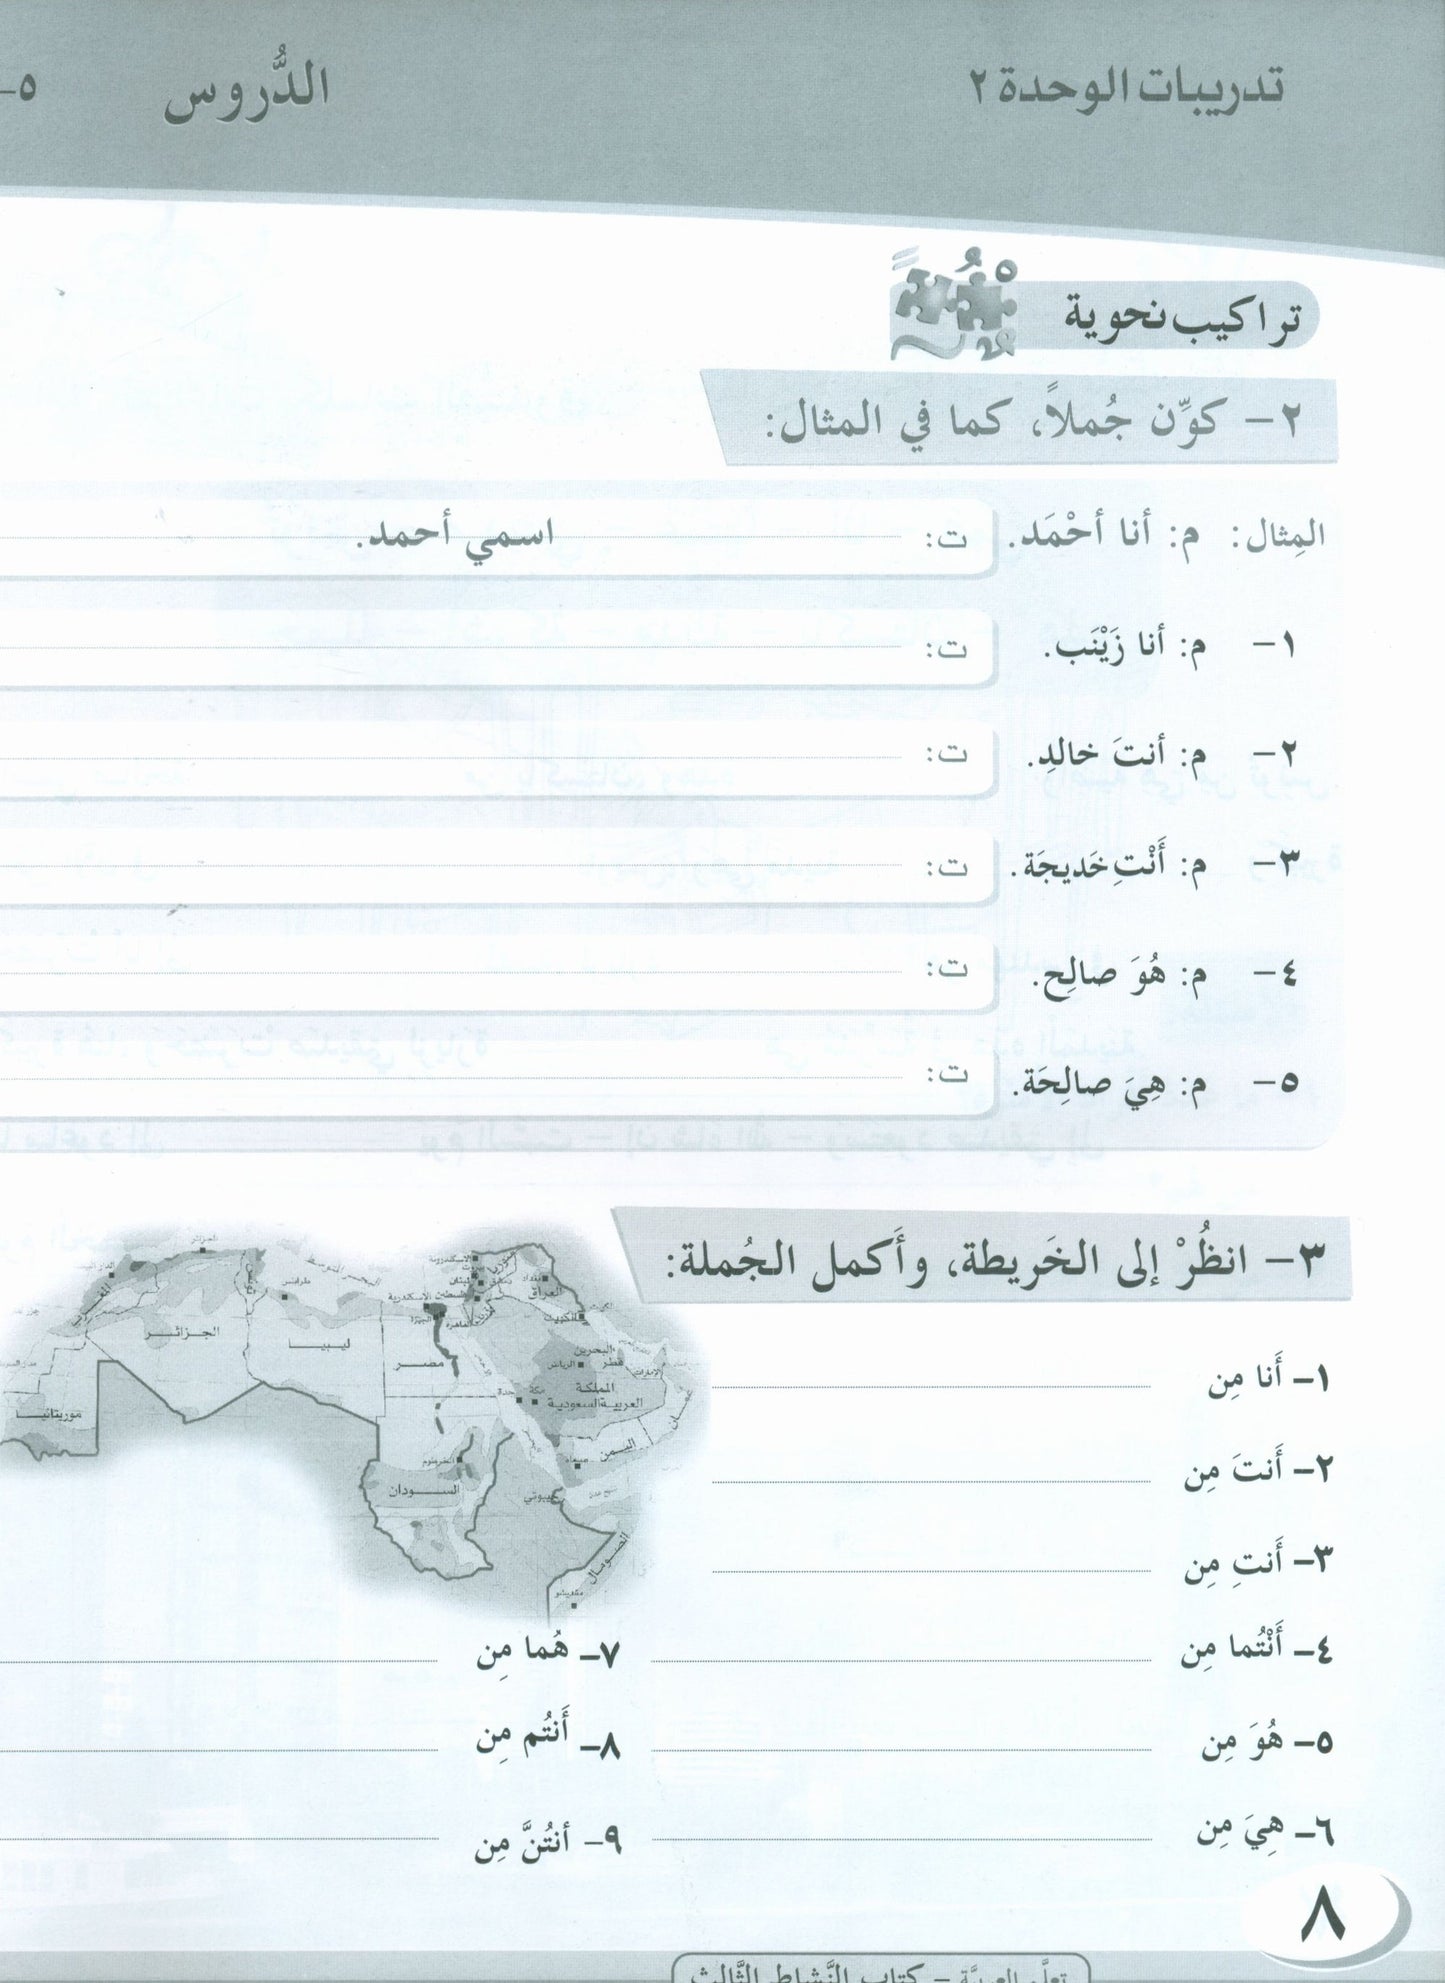 تدريبات الوحدة ٢
الدُّروس ٥-
تراكيب نحوية
٢- كوِّن جُملاً، كما في المثال:
المِثال: م: أنا أحْمَد. ت: اسمي أحمد.
١- م: أنا زَيْنَب. ت:
٢- م: أنتَ خالدِ. ت:
٣- م: أَنْتِ خَديجَة. ت:
٤- م: هُوَ صالِح. ت:
٥- م: هِيَ صالِحَة. ت:
٣- انظُرْ إلى الخَريطة، وأَكمل الجُملة:
الجـزائـر
ليبيـا
مصـر
موريتانيـا
الســودان
العراق
الكويت
البحرين
قطر
الرياض
المملكة
العربية السعودية
مكة
جدة
اليمن
صنعاء
عمـان
جيبوتي
الصومال
الخرطوم
طرابلس
القاهرة
الجيزة
الاسكندرية
بغداد
١- أَنا مِن
٢- أَنتَ مِن
٣- أَنتِ مِن
٤- أَنْتُما مِن
٥- هُوَ مِن
٦- هِيَ مِن
٧- هُما مِن
٨- أَنتُم مِن
٩- أنتُنَّ مِن
٨
تعلَّم العربيَّة - كتاب النَّشاط الثَّالث